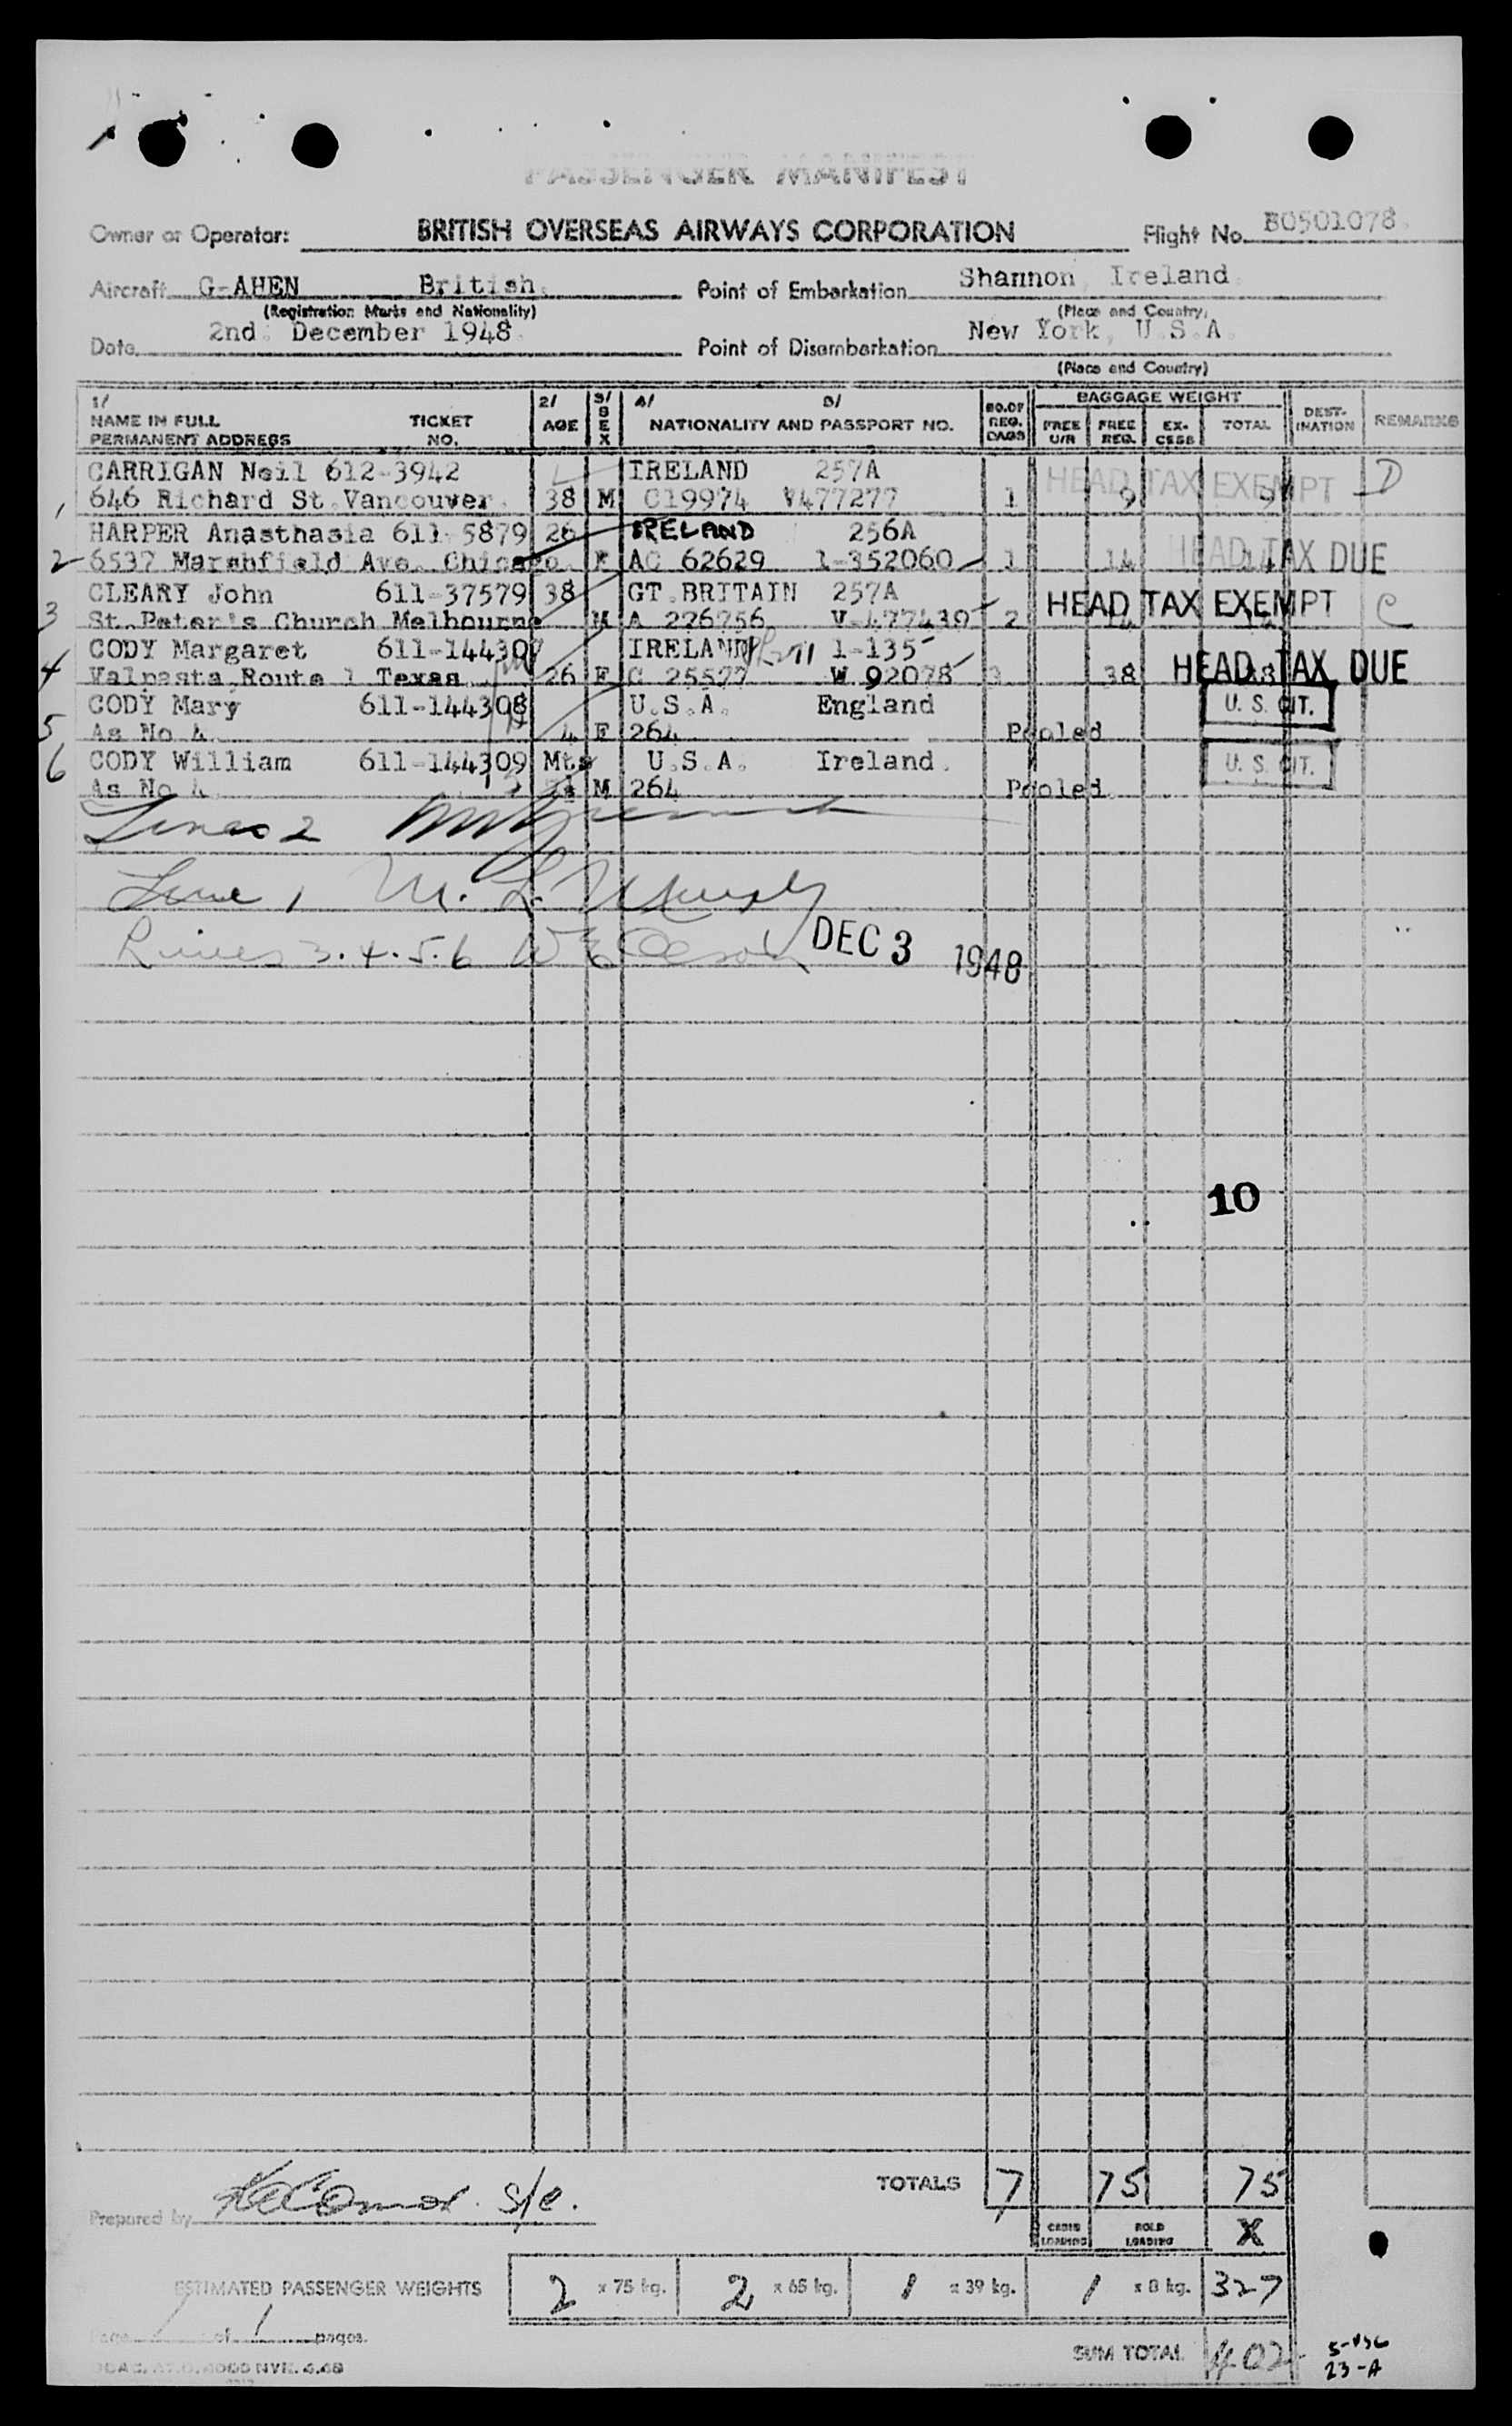 PASSENGER MANIFEST
Owner or Operator: BRITISH OVERSEAS AIRWAYS CORPORATION Flight No. BO501078.
Aircraft G-AHEN British. Point of Embarkation Shannon, Ireland.
(Registration Marks and Nationality) (Place and Country)
Date 2nd. December 1948. Point of Disembarkation New York, U.S.A.
(Place and Country)
1/ 2/ 3/ 4/ 5/ NO. OF REG. BAGS BAGGAGE WEIGHT DEST-INATION REMARKS
NAME IN FULL TICKET AGE SEX NATIONALITY AND PASSPORT NO. FREE U/R FREE REG. EX-CESS TOTAL
PERMANENT ADDRESS NO.
CARRIGAN Neil 612-3942 IRELAND 257A HEAD TAX EXEMPT D
1 646 Richard St.Vancouver. 38 M C19974 V477277 1 9 9
HARPER Anasthasia 611-5879 26 IRELAND 256A
2 6537 Marshfield Ave. Chicago. F AC 62629 1-352060 1 14 14 HEAD TAX DUE
CLEARY John 611-37579 38 GT.BRITAIN 257A HEAD TAX EXEMPT C
3 St.Peter's Church Melbourne M A 226756 V-477439 2 14
CODY Margaret 611-144307 IRELAND 1-135
4 Valpasta,Route 1 Texas 26 F C 25577 W 92078 3 38 38 HEAD TAX DUE
CODY Mary 611-144308 U.S.A. England U. S. CIT.
5 As No 4. 4 F 264 Pooled
6 CODY William 611-144309 Mts U.S.A. Ireland. U. S. CIT.
As No 4. M 264 Pooled.
Lines 2
Line 1 M. L. Murphy
Lines 3.4.5.6 DEC 3 1948
10
TOTALS 7 75 75
Prepared by s/c.
CABIN LOADING HOLD LOADING X
ESTIMATED PASSENGER WEIGHTS 2 x 75 kg. 2 x 65 kg. 1 x 39 kg. 1 x 8 kg. 327
Page 1 of 1 pages.
SUM TOTAL 402
23-A